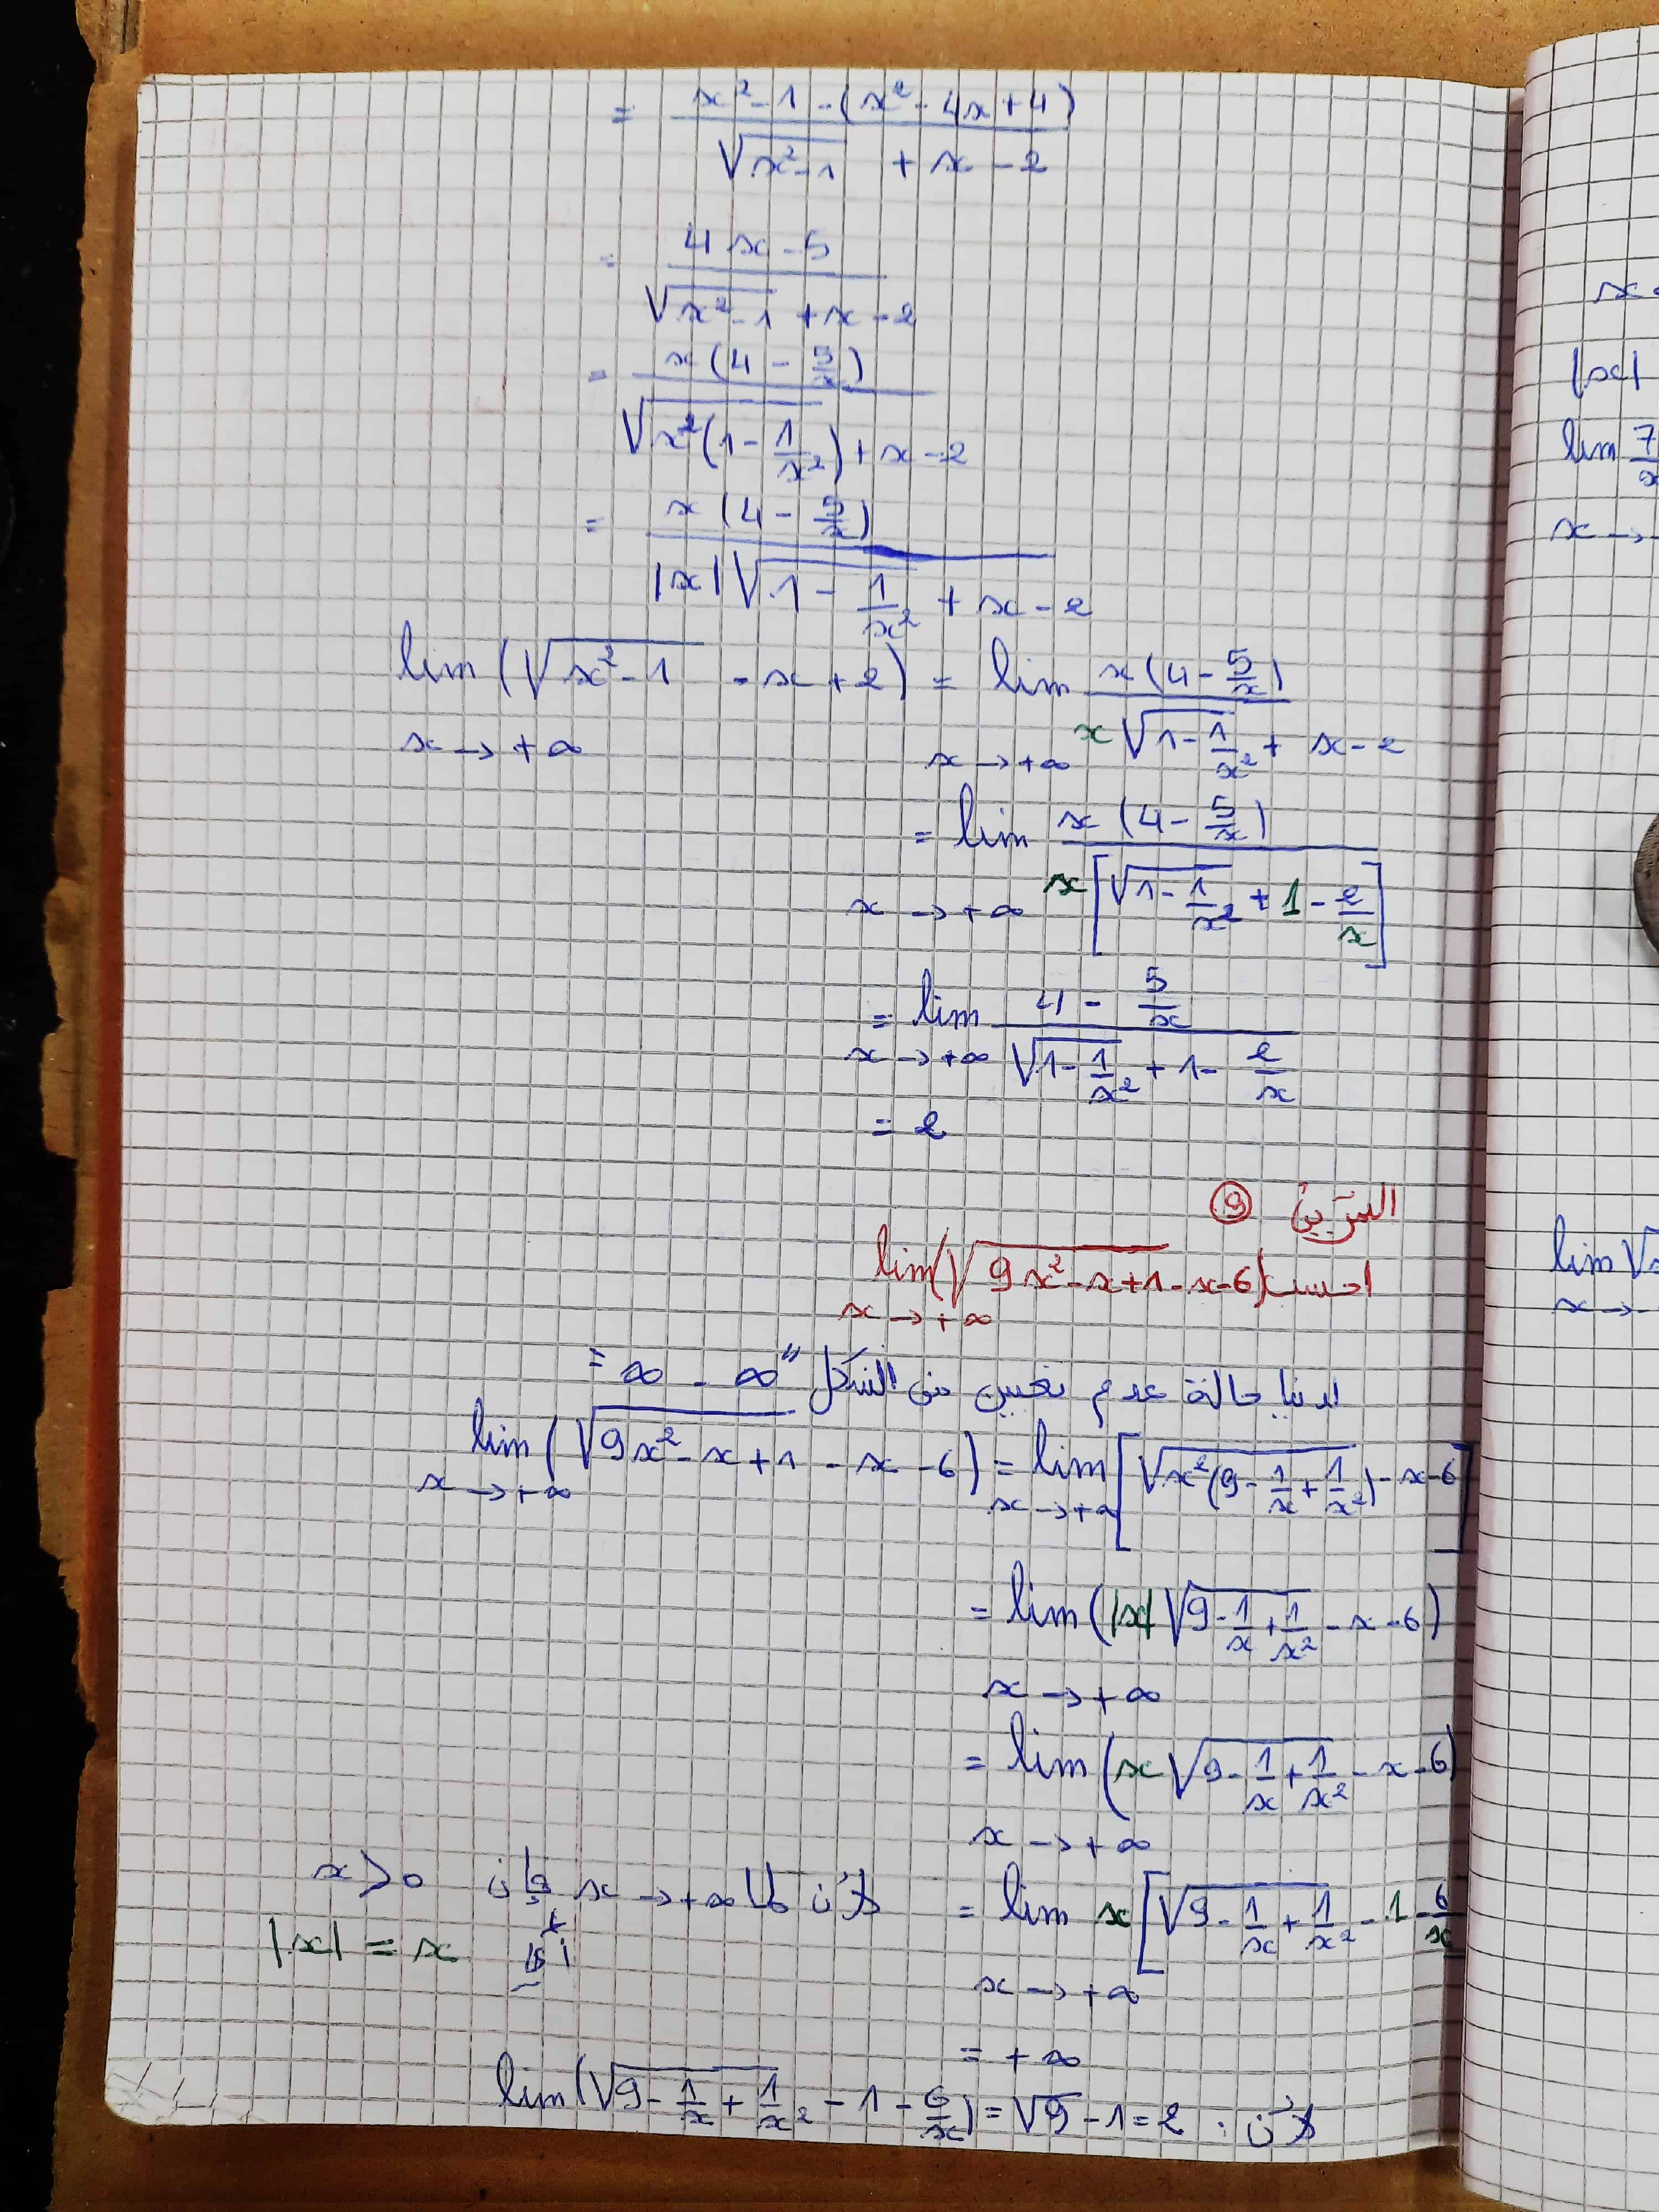 = (x² - 1 - (x² - 4x + 4)) / (√(x² - 1) + x - 2)
= (4x - 5) / (√(x² - 1) + x - 2)
= x(4 - 5/x) / (√(x²(1 - 1/x²)) + x - 2)
= x(4 - 5/x) / (|x|√(1 - 1/x²) + x - 2)
lim (√(x² - 1) - x + 2) = lim x(4 - 5/x) / (x√(1 - 1/x²) + x - 2)
x → +∞ x → +∞
= lim x(4 - 5/x) / x[√(1 - 1/x²) + 1 - 2/x]
x → +∞
= lim (4 - 5/x) / (√(1 - 1/x²) + 1 - 2/x)
x → +∞
= 2
التمرين 9
احسب lim(√(9x² - x + 1) - x - 6)
x → +∞
لدينا حالة عدم تعيين من الشكل "∞ - ∞"
lim (√(9x² - x + 1) - x - 6) = lim [√(x²(9 - 1/x + 1/x²)) - x - 6]
x → +∞ x → +∞
= lim (|x|√(9 - 1/x + 1/x²) - x - 6)
x → +∞
= lim (x√(9 - 1/x + 1/x²) - x - 6)
x → +∞
= lim x[√(9 - 1/x + 1/x²) - 1 - 6/x
x → +∞
لأن لما x → +∞ فإن x > 0
أي |x| = x
= +∞
لأن : lim(√(9 - 1/x + 1/x²) - 1 - 6/x) = √9 - 1 = 2
x
|x|
lim 7/x
x →
lim √x
x →